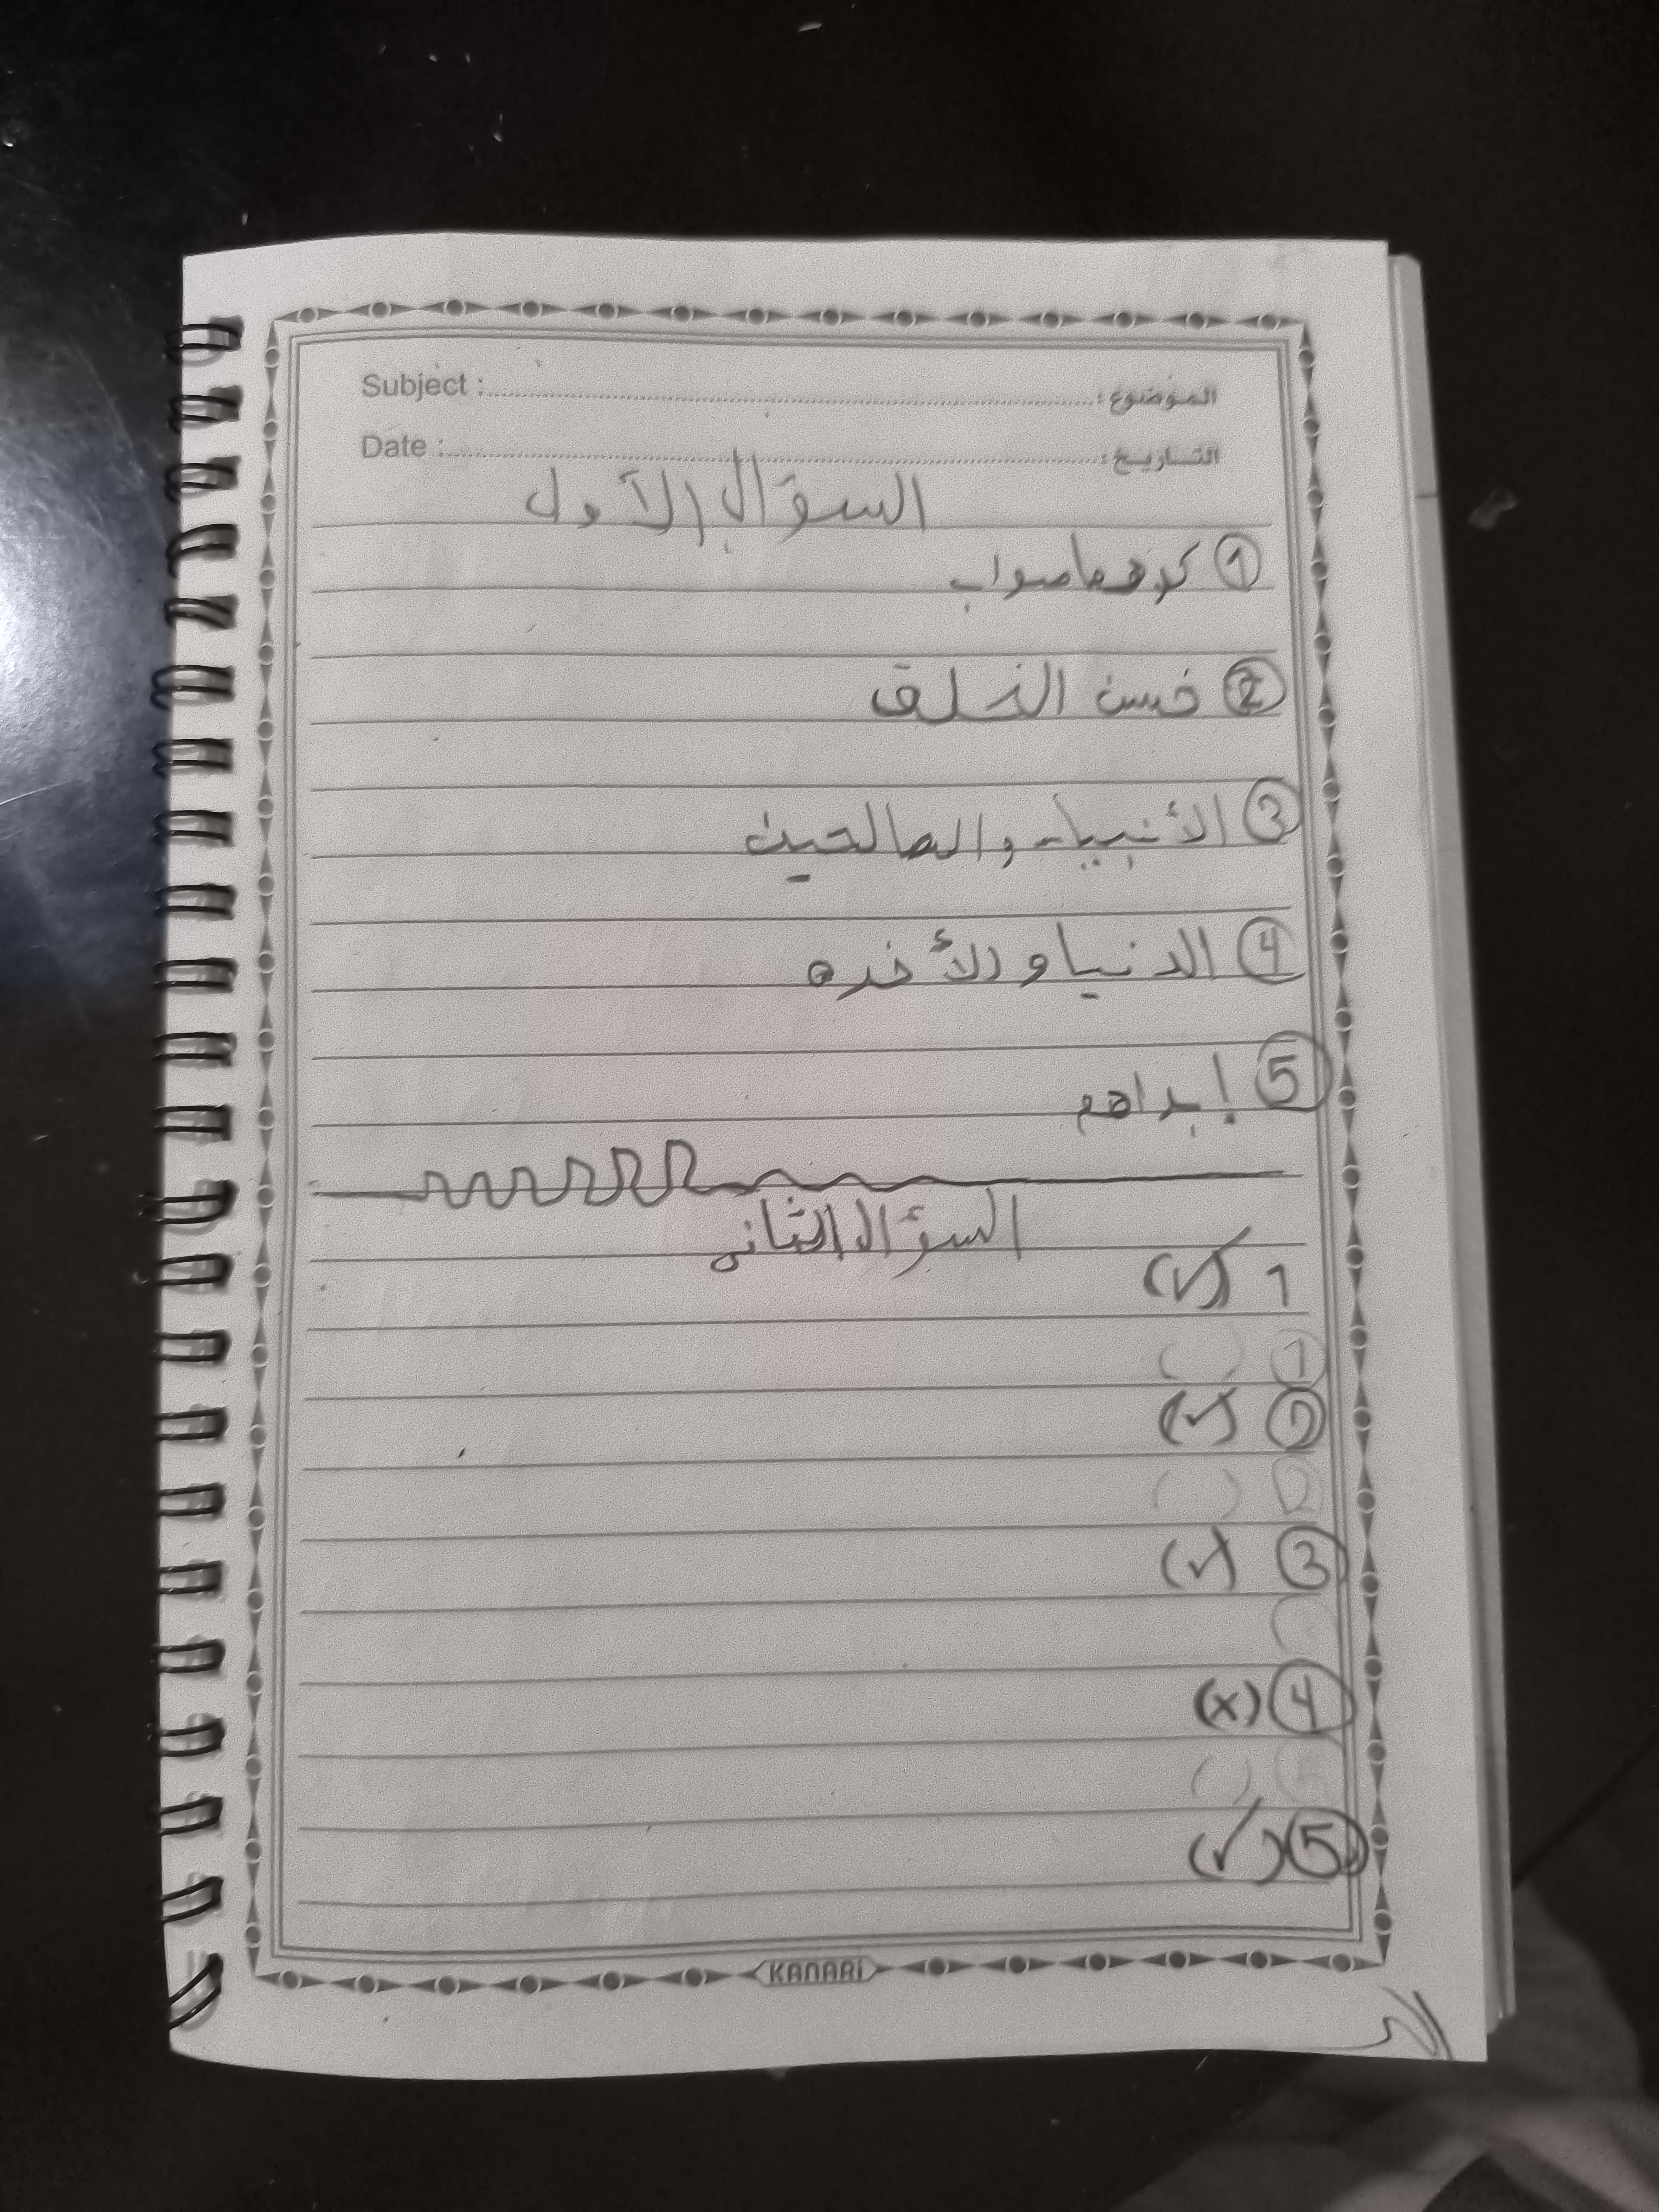 Subject : الموضوع :
Date : التاريخ :
السؤال الأول
① كوهما صواب
② خسن الخلق
③ الأنبياء والصالحين
④ الدنيا ولأخره
⑤ إبراهم
السؤال الثاني
1 (✓)
① ( )
② (✓)
③ (✓)
④ (x)
( )
⑤ (✓)
KANARi